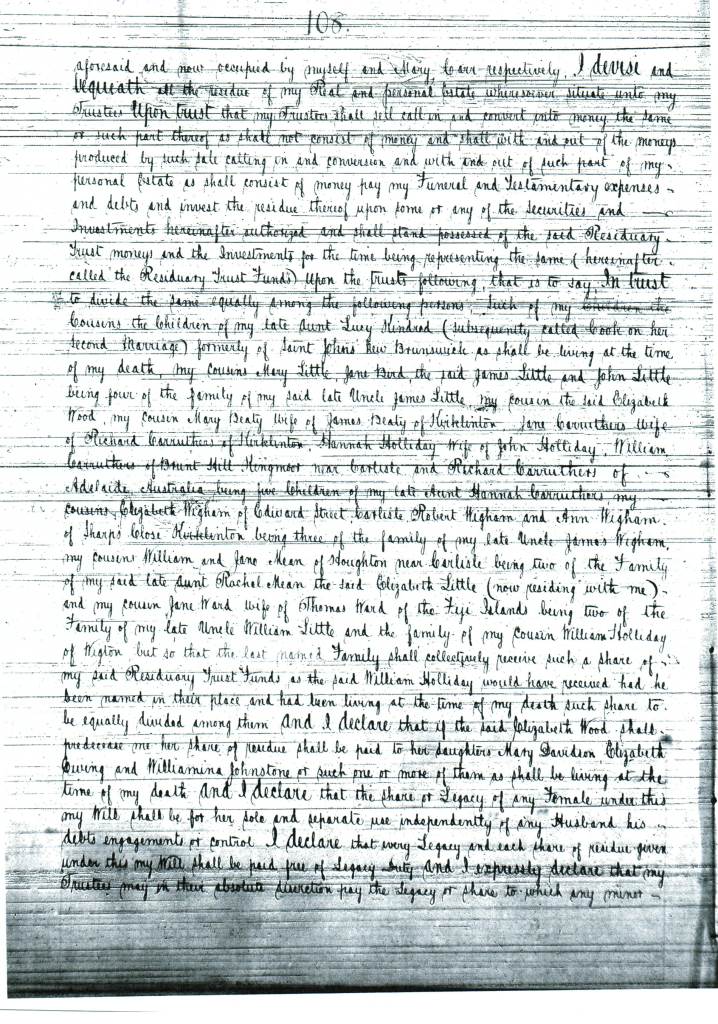 108.
aforesaid and now occupied by myself and Mary Carr respectively. I devise and
bequeath all the residue of my Real and personal Estate wheresoever situate unto my
Trustees Upon trust that my Trustees shall sell call in and convert into money the same
or such part thereof as shall not consist of money and shall with and out of the moneys
produced by such sale calling in and conversion and with and out of such part of my
personal Estate as shall consist of money pay my Funeral and Testamentary expenses
and debts and invest the residue thereof upon some or any of the securities and
Investments hereinafter authorized and shall stand possessed of the said Residuary
Trust moneys and the Investments for the time being representing the same (hereinafter
called the Residuary Trust Funds) Upon the trusts following, that is to say, In trust
to divide the same equally among the following persons. Such of my Children the
Cousins the Children of my late Aunt Lucy Kindred (subsequently called Cook on her
second Marriage) formerly of Saint Johns New Brunswick as shall be living at the time
of my death, my cousins Mary Little, Jane Bird, the said James Little and John Little
being four of the family of my said late Uncle James Little, my cousin the said Elizabeth
Wood, my cousin Mary Beaty wife of James Beaty of Kirklinton, Jane Carruthers wife
of Richard Carruthers of Kirklinton, Hannah Holliday wife of John Holliday, William
Carruthers of Brunt Hill Kingmoor near Carlisle and Richard Carruthers of
Adelaide, Australia being five Children of my late Aunt Hannah Carruthers my
cousins Elizabeth Wigham of Edward Street Carlisle, Robert Wigham and Ann Wigham
of Sharps Close Kirklinton being three of the family of my late Uncle James Wigham,
my cousins William and Jane Mean of Houghton near Carlisle being two of the Family
of my said late Aunt Rachel Mean the said Elizabeth Little (now residing with me)
and my cousin Jane Ward wife of Thomas Ward of the Fiji Islands being two of the
Family of my late Uncle William Little and the family of my cousin William Holliday
of Wigton but so that the last named Family shall collectively receive such a share of
my said Residuary Trust Funds as the said William Holliday would have received had he
been named in their place and had been living at the time of my death such share to
be equally divided among them And I declare that if the said Elizabeth Wood shall
predecease me her share of residue shall be paid to her daughters Mary Davidson, Elizabeth
Ewing and Williamina Johnstone or such one or more of them as shall be living at the
time of my death And I declare that the share or Legacy of any Female under this
my Will shall be for her sole and separate use independently of any Husband his
debts engagements or control I declare that every Legacy and each share of residue given
under this my Will shall be paid free of Legacy Duty And I expressly declare that my
Trustees may in their absolute discretion pay the Legacy or share to which any minor